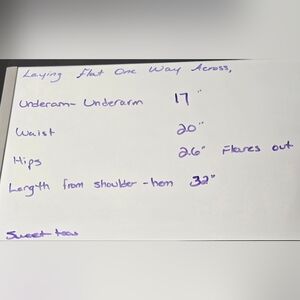 Laying Flat One Way Across,
Underam- Underarm 17"
Waist 20"
Hips 26" Flares out
Length from shoulder - hem 32"